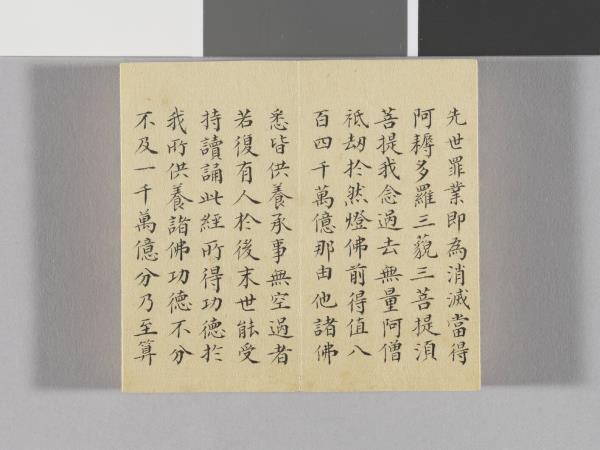 先世罪業即為消滅當得
阿耨多羅三藐三菩提須
菩提我念過去無量阿僧
祇劫於然燈佛前得值八
百四千萬億那由他諸佛
悉皆供養承事無空過者
若復有人於後末世能受
持讀誦此經所得功德於
我所供養諸佛功德不分
不及一千萬億分乃至算